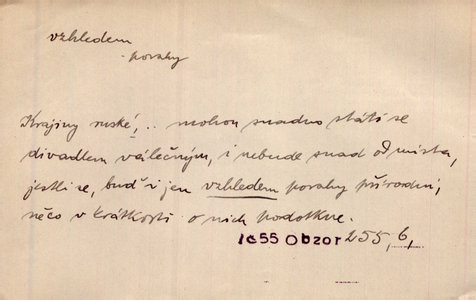 vzhledem
povahy
Krajiny ruské, .. mohou snadno státi se
divadlem válečným, i nebude snad od místa,
jestli se, buď i jen vzhledem povahy přírodní,
něco v krátkosti o nich podotkne.
1855 Obzor 255, 6,